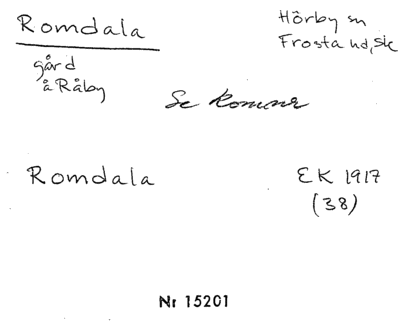 Romdala
Hörby sn
Frosta hd, Sk
gård
å Råby
Se
Romdala
EK 1917
(38)
Nr 15201